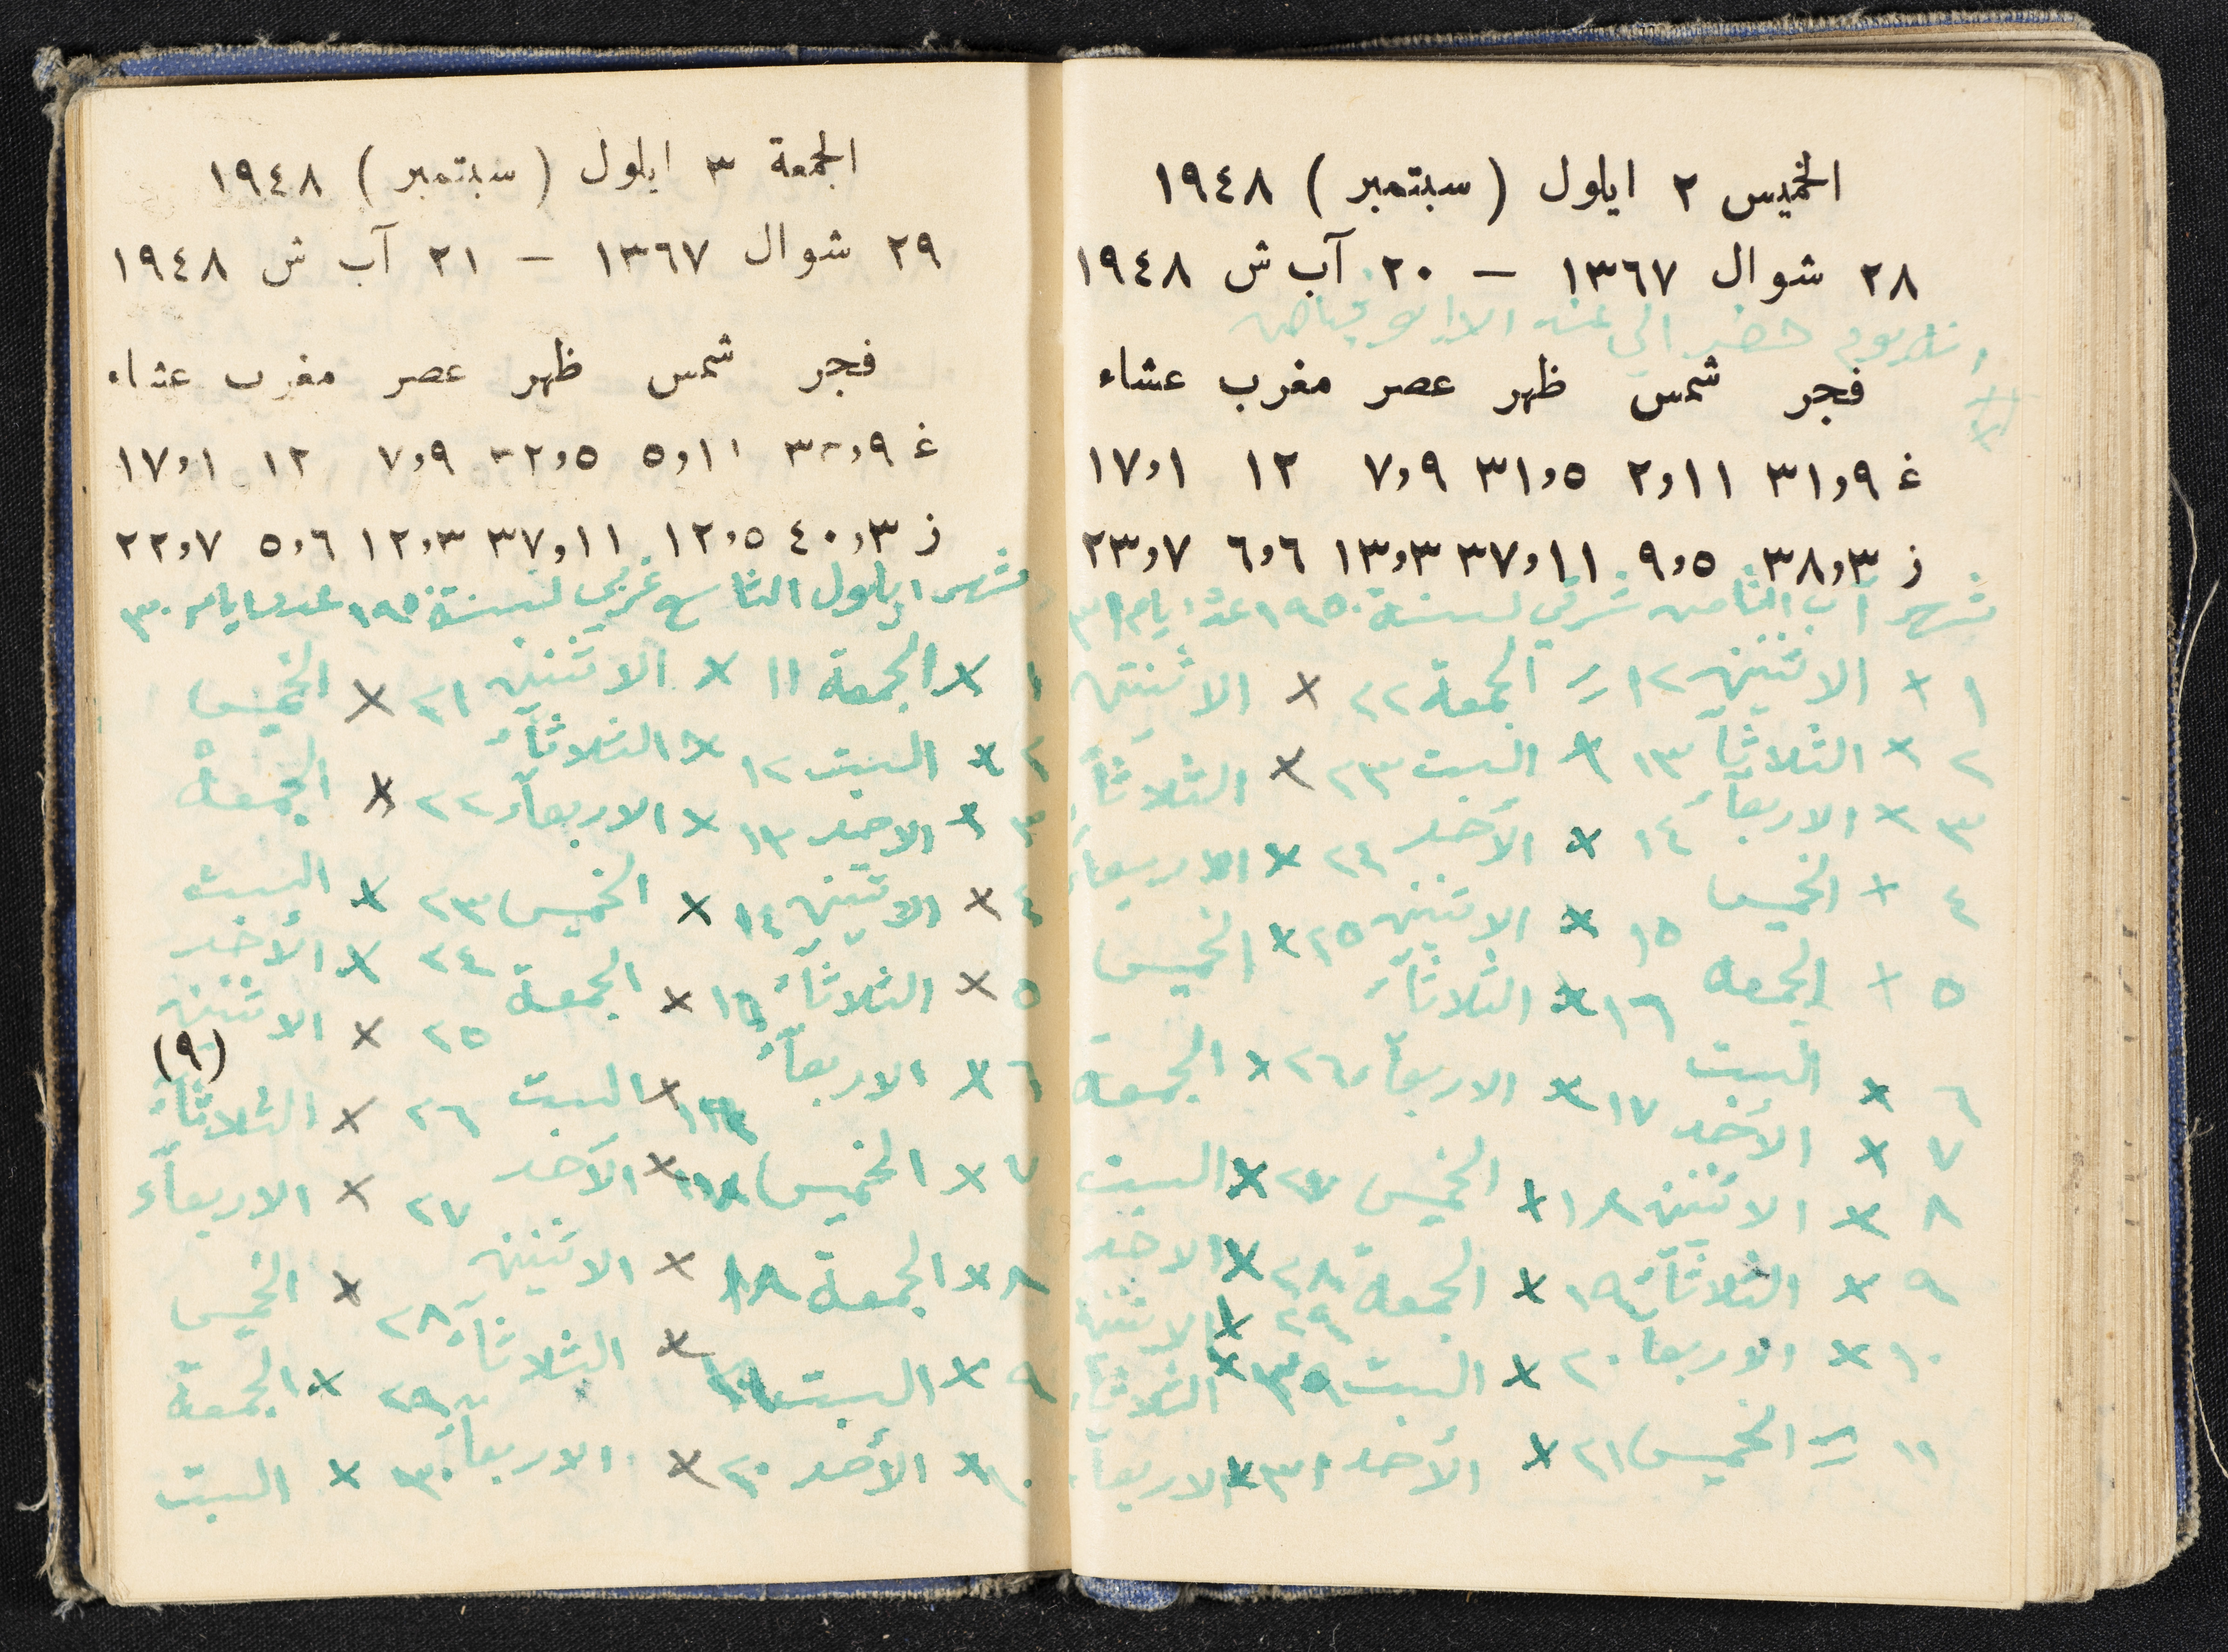 الخميس ٢ ايلول ( سبتمبر ) ١٩٤٨
٢٨ شوال ١٣٦٧ – ٢٠ آب ش ١٩٤٨
حضر الي
فجر شمس ظهر عصر مغرب عشاء
غ ٣١,٩ ٢,١١ ٣١,٥ ٧,٩ ١٢ ١٧,١
ز ٣٨,٣ ٩,٥ ٣٧,١١ ١٣,٣ ٦,٦ ٢٣,٧
شهر آب الثامن شرقي لسنة ١٩٥٠ ايام ٣١
١ x الاثنين ١٢ = الجمعة ٢٢ x الاثنين
٢ x الثلاثآ ١٣ x السبت ٢٣ x الثلاثآ
٣ x الاربعآء ١٤ x الأحد ٢٤ x الاربعآء
٤ x الخميس ١٥ x الاثنين ٢٥ x الخميس
٥ x الجمعه ١٦ x الثلاثآء
٦ x السبت ١٧ x الاربعآء ٢٦ x الجمعة
٧ x الأحد
٨ x الاثنين ١٨ x الخميس ٢٧ x السبت
٩ x الثلاثآء ١٩ x الجمعة ٢٨ x الاحد
٢٩ x الاثنين
١٠ x الاربعا ٢٠ x السبت ٣٠ x الثلاثآء
١١ = الخميس ٢١ x الأحد ٣١ x الاربعآء
الجمعة ٣ ايلول ( سبتمبر ) ١٩٤٨
٢٩ شوال ١٣٦٧ – ٢١ آب ش ١٩٤٨
فجر شمس ظهر عصر مغرب عشاء
غ ٣٣,٩ ٥,١١ ٣٢,٥ ٧,٩ ١٢ ١٧,١
ز ٤٠,٣ ١٢,٥ ٣٧,١١ ١٢,٣ ٥,٦ ٢٢,٧
شهر ايلول التاسع غربي لسنة ١٩٥٠ ايام ٣٠
١ x الجمعة ١١ x الاثنين ٢١ x الخميس
٢ x السبت ١٢ x الثلاثآء
٣ x الاحد ١٣ x الاربعآء ٢٢ x الجمعة
٤ x الاثنين ١٤ x الخميس ٢٣ x السبت
٥ x الثلاثآء ١٥ x الجمعة ٢٤ x الأحد
٢٥ x الاثنين
(٩)
٦ x الاربعآء ١٦ x السبت ٢٦ x الثلاثآء
٧ x الخميس ١٧ x الأحد ٢٧ x الاربعآء
٨ x الجمعة ١٨ x الاثنين ٢٨ x الخميس
٩ x السبت ١٩ x الثلاثآء ٢٩ x الجمعة
١٠ x الأحد ٢٠ x الاربعآء ٣٠ x السبت